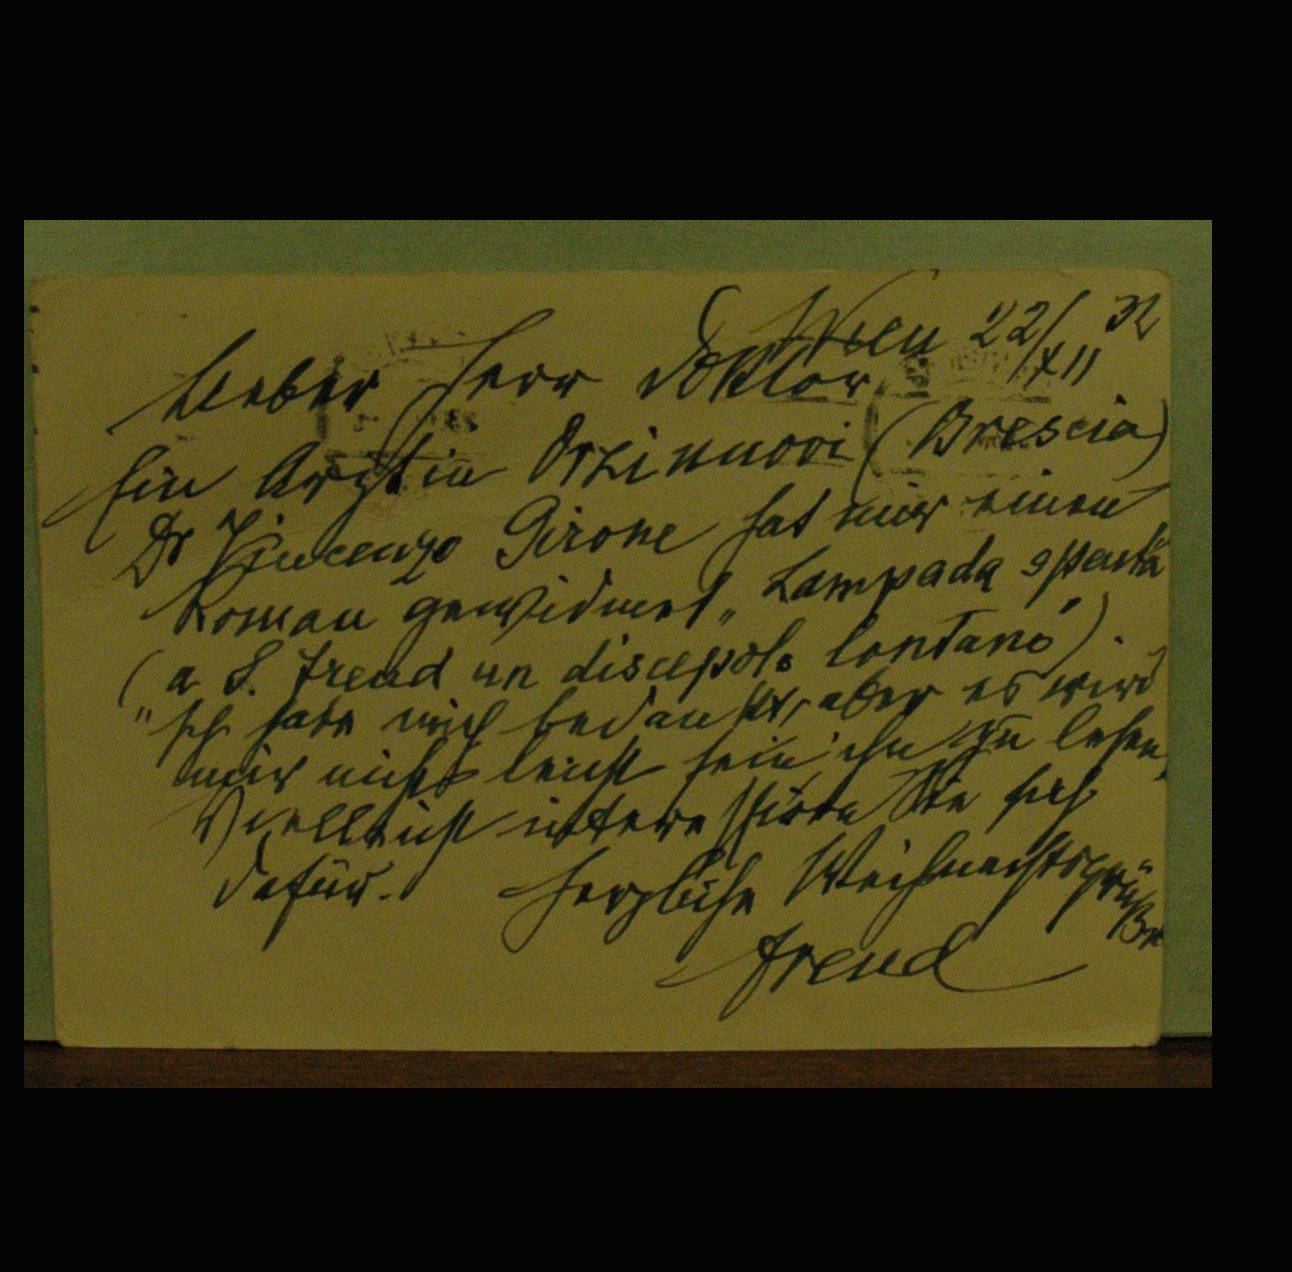 Wien 22/XII 32
Lieber Herr Doktor
Ein Arzt in Orzinuovi (Brescia)
Dr Vincenzo Girone hat mir einen
Roman gewidmet „Lampada spenta“
(„a S. Freud un discepolo lontano“).
Ich habe mich bedankt, aber es wird
mir nicht leicht sein ihn zu lesen,
Vielleicht interessiren Sie sich
dafür. Herzliche Weihnachtsgrüße
Freud